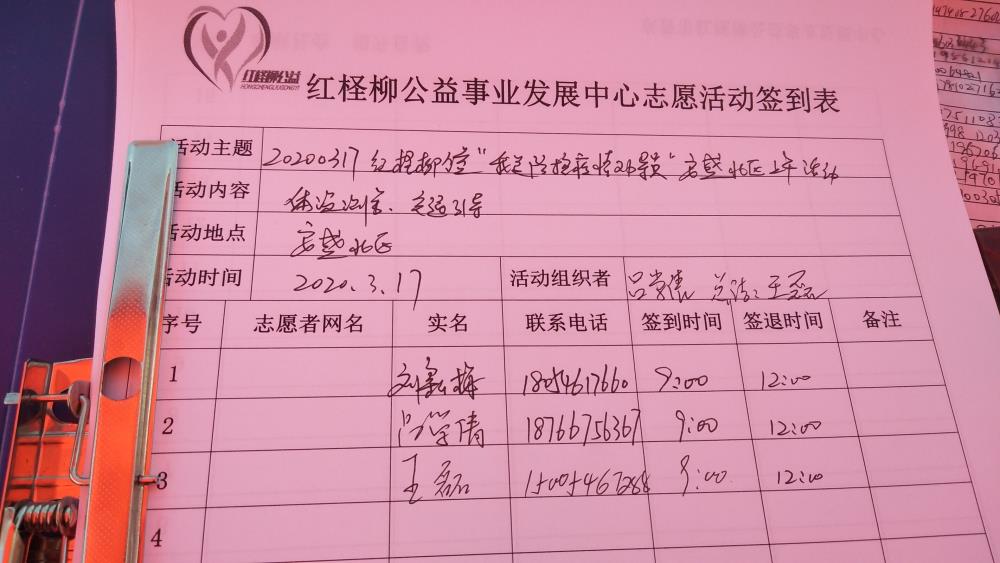 红柽柳公益
HONGCHENGLIUGONGYI
红柽柳公益事业发展中心志愿活动签到表
活动主题 20200317红柽柳 " 疫情 " 安盛北区上午活动
活动内容 体温测量、交通引导
活动地点 安盛北区
活动时间 2020.3.17 活动组织者 吕学倩 王磊
序号 志愿者网名 实名 联系电话 签到时间 签退时间 备注
1 刘 梅 18054617660 9:00 12:00
2 吕学倩 18766756367 9:00 12:00
3 王磊 15005467288 9:00 12:00
4